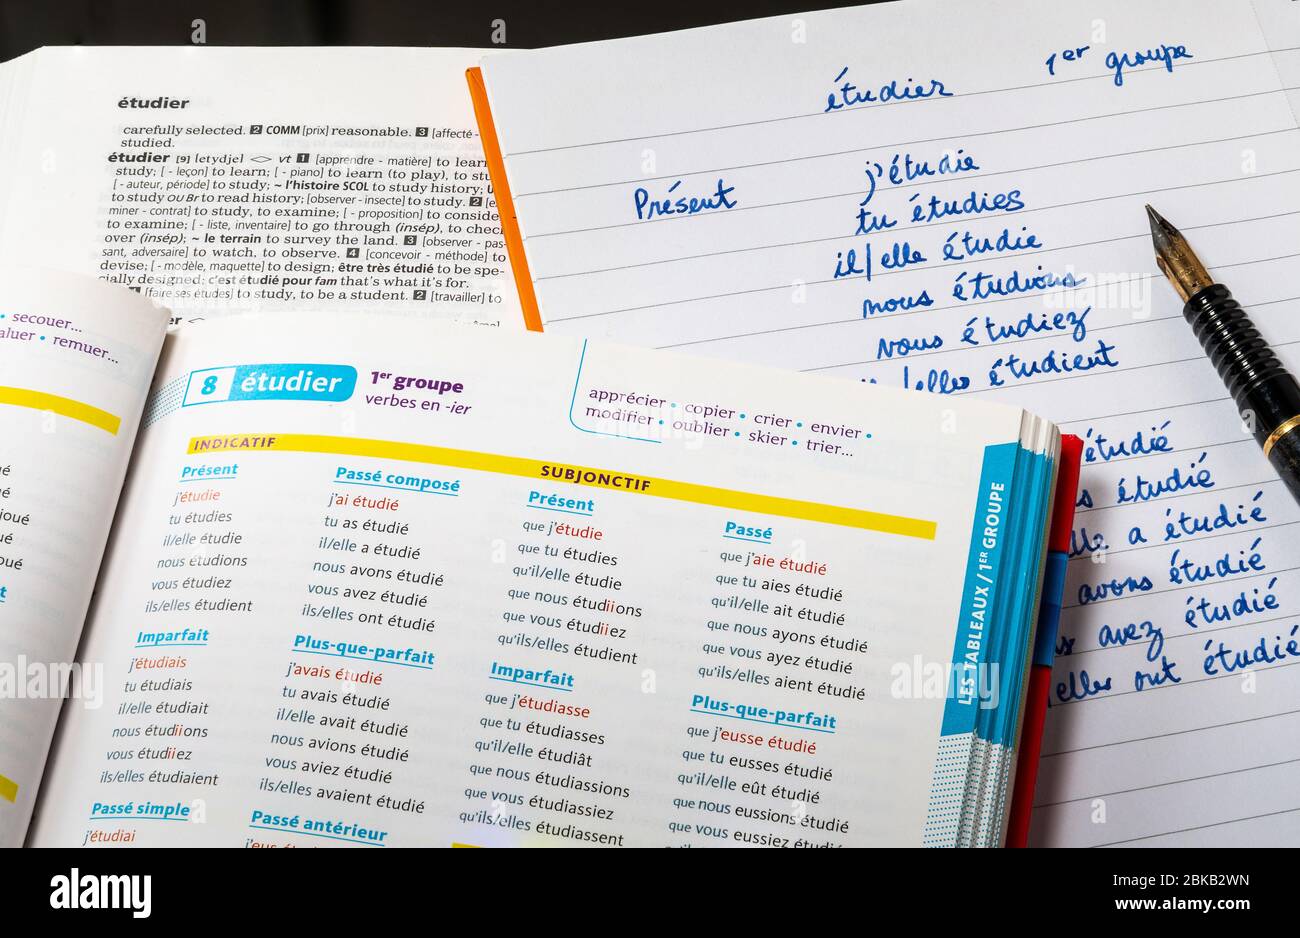 étudier
carefully selected. 2 COMM [prix] reasonable. 3 [affecté -
studied.
étudier [9] [etydje] <> vt 1 [apprendre - matière] to learn
study; [- leçon] to learn; [- piano] to learn (to play), to
[- auteur, période] to study; ~ l'histoire SCOL to study history;
to study OU Br to read history; [observer - insecte] to study. 2
miner - contrat] to study, to examine; [- proposition] to conside
to examine; [- liste, inventaire] to go through (insép), to chec
over (insép); ~ le terrain to survey the land. 3 [observer - pas-
sant, adversaire] to watch, to observe. 4 [concevoir - méthode] to
devise; [- modèle, maquette] to design; être très étudié to be spe-
cially designed; c'est étudié pour fam that's what it's for.
1 [faire ses études] to study, to be a student. 2 [travailler] to
étudier 1er groupe
Présent j'étudie
tu étudies
il/elle étudie
nous étudions
vous étudiez
/elles étudient
étudié
étudié
elle a étudié
avons étudié
avez étudié
elles ont étudié
• secouer...
aluer • remuer...
é
é
joué
ué
oué
t
8 étudier 1er groupe
verbes en -ier
apprécier • copier • crier • envier •
modifier • oublier • skier • trier...
INDICATIF
Présent
j'étudie
tu étudies
il/elle étudie
nous étudions
vous étudiez
ils/elles étudient
Imparfait
j'étudiais
tu étudiais
il/elle étudiait
nous étudiions
vous étudiiez
ils/elles étudiaient
Passé simple
j'étudiai
Passé composé
j'ai étudié
tu as étudié
il/elle a étudié
nous avons étudié
vous avez étudié
ils/elles ont étudié
Plus-que-parfait
j'avais étudié
tu avais étudié
il/elle avait étudié
nous avions étudié
vous aviez étudié
ils/elles avaient étudié
Passé antérieur
SUBJONCTIF
Présent
que j'étudie
que tu étudies
qu'il/elle étudie
que nous étudiions
que vous étudiiez
qu'ils/elles étudient
Imparfait
que j'étudiasse
que tu étudiasses
qu'il/elle étudiât
que nous étudiassions
que vous étudiassiez
qu'ils/elles étudiassent
Passé
que j'aie étudié
que tu aies étudié
qu'il/elle ait étudié
que nous ayons étudié
que vous ayez étudié
qu'ils/elles aient étudié
Plus-que-parfait
que j'eusse étudié
que tu eusses étudié
qu'il/elle eût étudié
que nous eussions étudié
que vous eussiez étudié
LES TABLEAUX / 1ER GROUPE
alamy
Image ID: 2BKB2WN
www.alamy.com